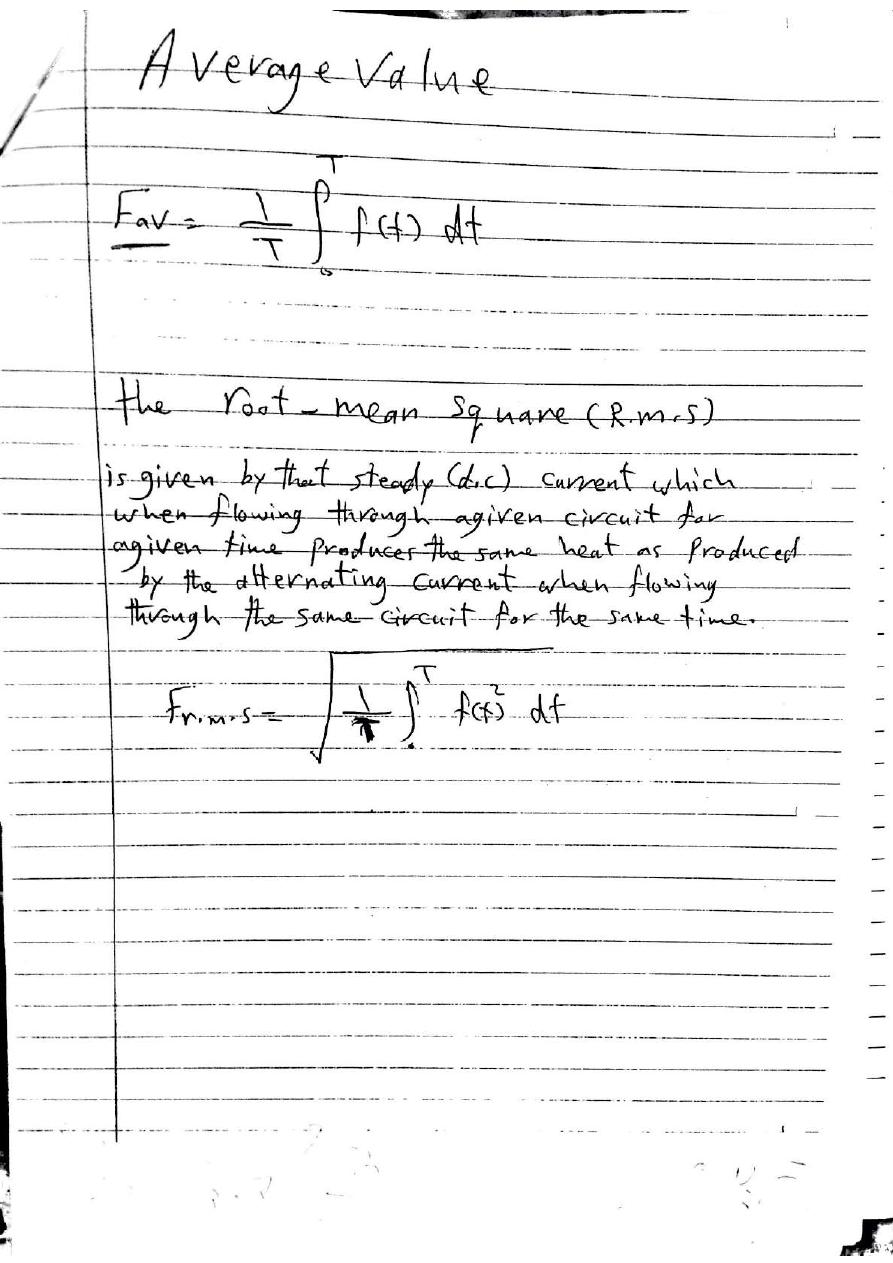 Average Value
Fav = 1/T ∫₀ᵀ f(t) dt
the root-mean square (R.m.s)
is given by that steady (d.c) current which
when flowing through agiven circuit for
agiven time produces the same heat as Produced
by the alternating current when flowing
through the same circuit for the same time.
Fr.m.s = √(1/T ∫₀ᵀ f(t)² dt)